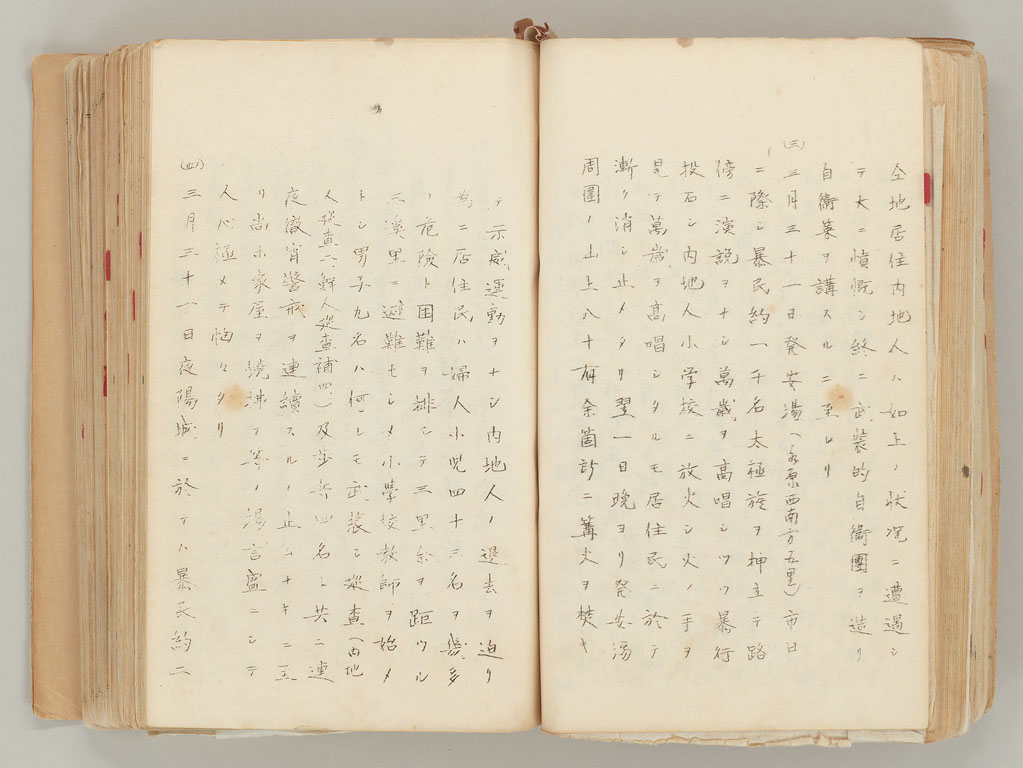 全地居住内地人ハ如上ノ状況ニ遭遇シ
テ大ニ憤慨シ終ニ武装的自衛團ヲ造リ
自衛策ヲ講スルニ至レリ
(三)
三月三十一日発安湯(水原西南方五里)市日
ニ際シ暴民約一千名太極旗ヲ押立テ路
傍ニ演説ヲナシ萬歳ヲ高唱シツツ暴行
投石シ内地人小学校ニ放火シ火ノ手ヲ
見テ萬歳ヲ高唱シタルモ居住民ニ於テ
漸ク消シ止メタリ翌一日晩ヨリ発安湯
周圍ノ山上八十有余箇所ニ篝火ヲ焚キ
テ示威運動ヲナシ内地人ノ退去ヲ迫リ
為ニ居住民ハ婦人小児四十二名ヲ幾多
ノ危険ト困難ヲ排シテ三里余ヲ距ツル
三溪里ニ避難セシメ小學校教師ヲ始メ
トシ男子九名ハ何レモ武装シ巡査(内地
人巡査二、鮮人巡査補四、)及歩兵四名ト共ニ連
夜徹宵警戒ヲ連續スルノ止ムナキニ至
リ尚ホ家屋ヲ焼拂フ等ノ湯言盛ニシテ
人心極メテ恟々タリ
(四)
三月三十一日夜陽城ニ於テハ暴民約二